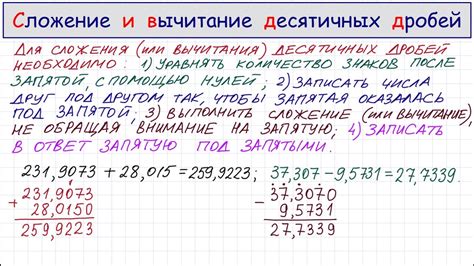 Сложение и вычитание десятичных дробей
ДЛЯ СЛОЖЕНИЯ (ИЛИ ВЫЧИТАНИЯ) ДЕСЯТИЧНЫХ ДРОБЕЙ
НЕОБХОДИМО: 1) УРАВНЯТЬ КОЛИЧЕСТВО ЗНАКОВ ПОСЛЕ
ЗАПЯТОЙ, С ПОМОЩЬЮ НУЛЕЙ; 2) ЗАПИСАТЬ ЧИСЛА
ДРУГ ПОД ДРУГОМ ТАК, ЧТОБЫ ЗАПЯТАЯ ОКАЗАЛАСЬ
ПОД ЗАПЯТОЙ; 3) ВЫПОЛНИТЬ СЛОЖЕНИЕ (ИЛИ ВЫЧИТАНИЕ),
НЕ ОБРАЩАЯ ВНИМАНИЕ НА ЗАПЯТУЮ; 4) ЗАПИСАТЬ
В ОТВЕТ ЗАПЯТУЮ ПОД ЗАПЯТЫМИ.
231,9073 + 28,015 = 259,9223; 37,307 - 9,5731 = 27,7339.
+ 231,9073
28,0150
259,9223
- 37,3070
9,5731
27,7339